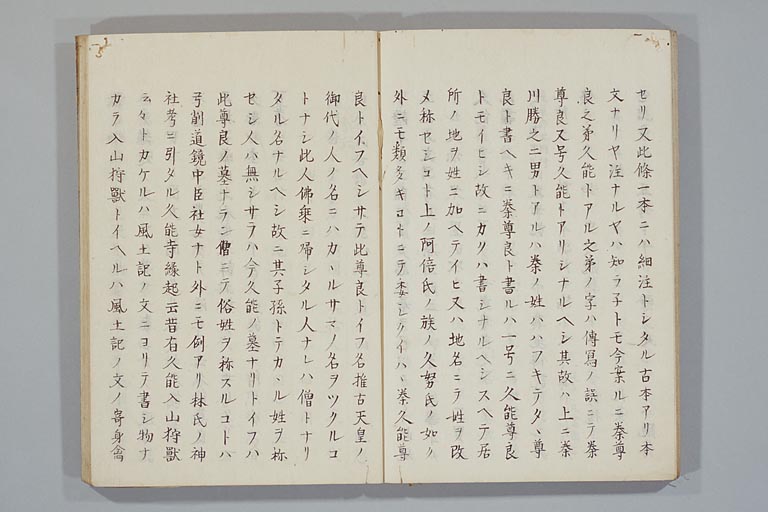 セリ又此條一本ニハ細注トシタル古本アリ本
文ナリヤ注ナルヤハ知ラ子トモ今案ルニ秦尊
良之弟久能トアル之弟ノ字ハ傳寫ノ誤ニテ秦
尊良又号久能トアリシナルヘシ其故ハ上ニ秦
川勝之二男トアルハ秦ノ姓ハハフキテタヽ尊
良ト書ヘキニ秦尊良ト書ルハ一号ニ久能尊良
トモイヒシ故ニカクハ書シナルヘシスヘテ居
所ノ地ヲ姓ニ加ヘテイヒ又ハ地名ニテ姓ヲ改
メ称セシコト上ノ阿倍氏ノ族ノ久努氏ノ如ク
外ニモ類多キコトニテ委シクイハヽ秦久能尊
良トイフヘシサテ此尊良トイフ名推古天皇ノ
御代ノ人ノ名ニハカヽルサマノ名ヲツクルコ
トナシ此人佛乗ニ帰シタル人ナレハ僧トナリ
タル名ナルヘシ故ニ其子孫トテカヽル姓ヲ称
セシ人ハ無シサラハ今久能ノ墓ナリトイフハ
此尊良ノ墓ナラン僧ニテ俗姓ヲ称スルコトハ
弓削道鏡中臣社女ナト外ニモ例アリ林氏ノ神
社考ニ引タル久能寺縁起云昔有久能入山狩獸
云々トカケルハ風土記ノ文ニヨリテ書シ物ナ
カラ入山狩獸トイヘルハ風土記ノ文ノ寄身禽